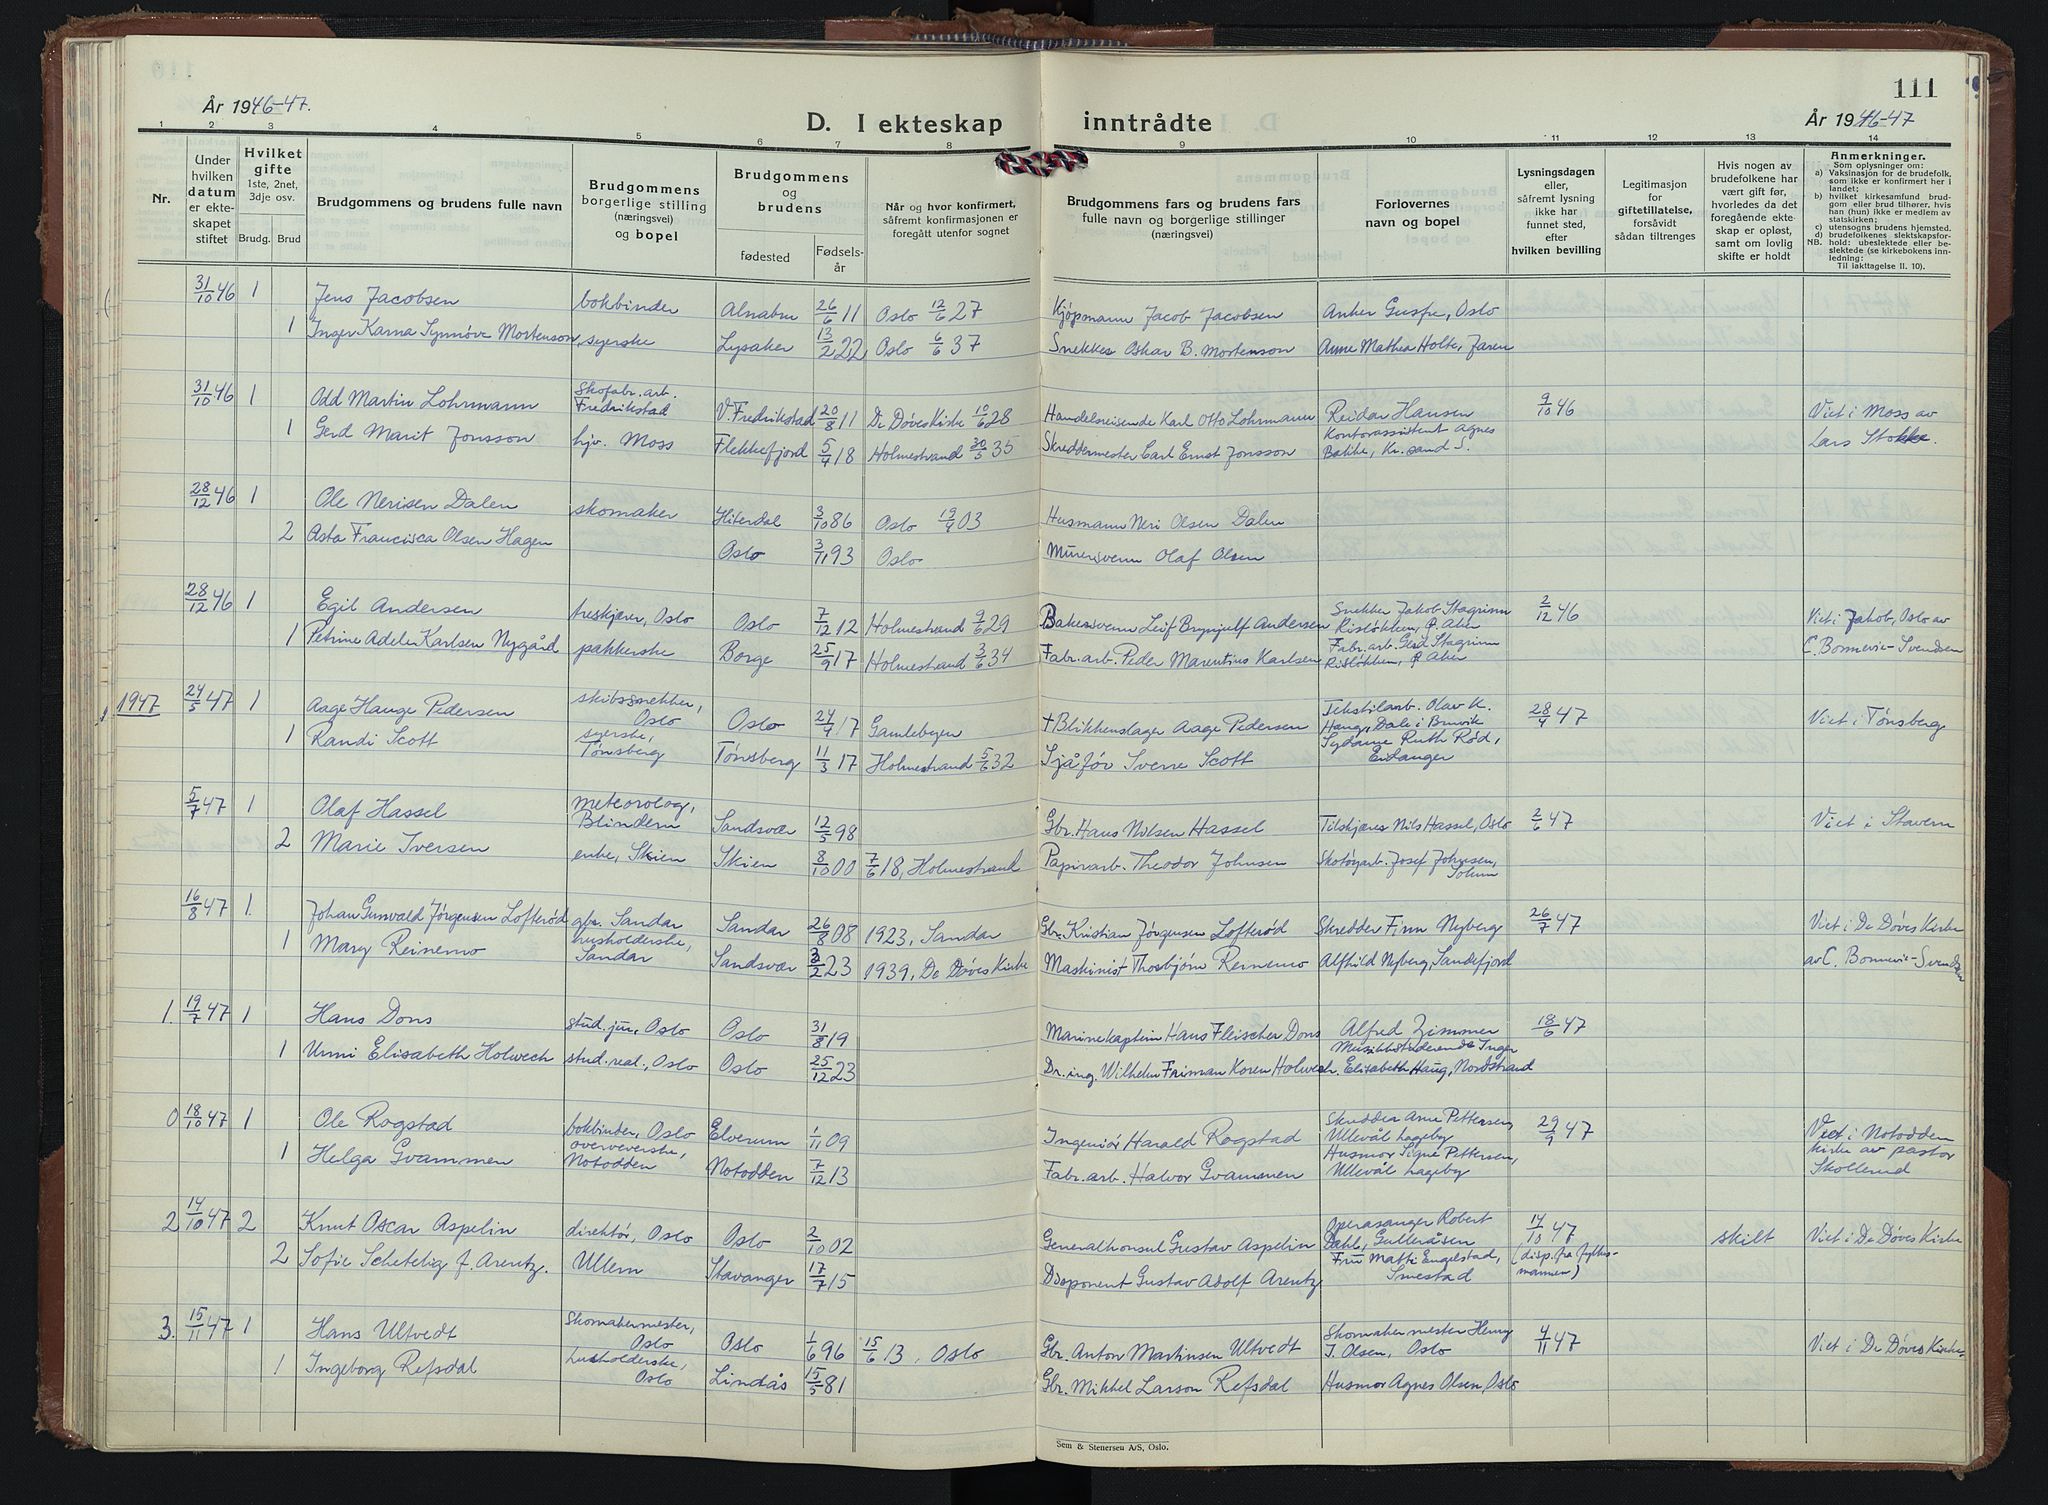 År 1946-47.
D. I ekteskap inntrådte
111
År 1946-47
1 2 3 4 5 6 7 8 9 10 11 12 13 14
Nr.
Under hvilken datum er ekteskapet stiftet
Hvilket gifte
1ste, 2net, 3dje osv.
Brudg. Brud
Brudgommens og brudens fulle navn
Brudgommens borgerlige stilling (næringsvei) og bopel
Brudgommens og brudens
fødested Fødselsår
Når og hvor konfirmert, såfremt konfirmasjonen er foregått utenfor sognet
Brudgommens fars og brudens fars fulle navn og borgerlige stillinger (næringsvei)
Forlovernes navn og bopel
Lysningsdagen eller, såfremt lysning ikke har funnet sted, efter hvilken bevilling
Legitimasjon for giftetillatelse, forsåvidt sådan tiltrenges
Hvis nogen av brudefolkene har vært gift før, hvorledes da det foregående ekteskap er opløst, samt om lovlig skifte er holdt
Anmerkninger.
Som oplysninger om:
a) Vaksinasjon for de brudefolk, som ikke er konfirmert her i landet;
b) hvilket kirkesamfund brudgom eller brud tilhører, hvis han (hun) ikke er medlem av statskirken;
c) utensogns brudens hjemsted.
d) brudefolkenes slektskapsforhold: ubeslektede eller beslektede (se kirkebokens innledning:
NB.
Til iakttagelse II. 10).
31/10 46 1 Jens Jacobsen bokbinder Alnabru 26/6 11 Oslo 12/6 27 Kjøpmann Jacob Jacobsen Anker Gusfre, Oslo
1 Inger Karna Synnøve Mortenson, syerske Lysaker 13/2 22 Oslo 6/6 37 Snekker Oskar B. Mortenson Anne Mathea Holte, Jaren
31/10 46 1 Odd Martin Lohrmann Skofabr. arb. Fredrikstad V. Fredrikstad 20/8 11 De Døves Kirke 10/6 28 Handelsreisende Karl Otto Lohrmann Reidar Hansen 9/10 46 Viet i Moss av
1 Gerd Marit Jonsson hjv. Moss Flekkefjord 5/4 18 Holmestrand 30/5 35 Skreddermester Carl Ernst Jonsson Kontorassistent Agnes Bakke, Kr.sand S. Lars Stokke.
28/12 46 1 Ole Nerisen Dalen skomaker Hiterdal 3/10 86 Oslo 19/4 03 Husmann Neri Olsen Dalen
2 Asta Francisca Olsen Hagen Oslo 3/11 93 Oslo Murersvenn Olaf Olsen
28/12 46 1 Egil Andersen treskjærer, Oslo Oslo 7/12 12 Holmestrand 9/6 29 Bakersvenn Leif Brynjulf Andersen Snekker Jakob Stagrinn Risløkken, Ø. Aker 2/12 46 Viet i Jakob, Oslo av
1 Petrine Adeler Karlsen Nygård pakkerske Borge 25/9 17 Holmestrand 3/6 34 Fabr. arb. Peder Marentius Karlsen Fabr. arb. Gerd Stagrinn Risløkken, Ø Aker C. Bonnevie-Svendsen
1947 24/5 47 1 Aage Hauge Pedersen skibssnekker, Oslo Oslo 24/4 17 Gamlebyen + Blikkenslager Aage Pedersen Tekstilarb. Olav K. Haug, Dale i Bruvik 28/4 47 Viet i Tønsberg
1 Randi Scott syerske, Tønsberg Tønsberg 11/3 17 Holmestrand 5/6 32 Sjåfør Sverre Scott Sydame Ruth Rød, Eidanger
5/7 47 1 Olaf Hassel meteorolog, Blindern Sandsvær 12/5 98 Gbr. Hans Nilsen Hassel Tilskjærer Nils Hassel, Oslo 2/6 47 Viet i Stavern
2 Marie Iversen enke, Skien Skien 8/10 00 7/6 18, Holmestrand Papirarb. Theodor Johnsen Skotøyarb. Josef Johnsen, Solum
16/8 47 1. Johan Gunvald Jørgensen Lofterød gbr. Sandar Sandar 26/8 08 1923, Sandar Gbr. Kristian Jørgensen Lofterød Skredder Finn Nyberg 26/7 47 Viet i De Døves Kirke
1 Mary Reinemo husholderske, Sandar Sandsvær 3/2 23 1939, De Døves Kirke Maskinist Thorbjørn Reinemo Alfhild Nyberg, Sandefjord av C. Bonnevie-Svendsen
1. 19/7 47 1 Hans Dons stud. jur., Oslo Oslo 31/8 19 Marinekaptein Hans Fleischer Dons Alfred Zimmer 18/6 47
1 Unni Elisabeth Holwech stud. real., Oslo Oslo 25/12 23 Dr. ing. Wilhelm Friman Koren Holwech Musikkstuderende Inger Elisabeth Haug, Nordstrand
0 18/10 47 1 Ole Rogstad bokbinder, Oslo Elverum 1/11 09 Ingeniør Harald Rogstad Skredder Arne Pettersen, Ullevål hageby 29/9 47 Viet i Notodden
1 Helga Gvammen overveverske, Notodden Notodden 7/12 13 Fabr. arb. Halvor Gvammen Husmor Signe Pettersen, Ullevål hageby kirke av pastor Skollerud
2 14/10 47 2 Knut Oscar Aspelin direktør, Oslo Oslo 2/10 02 Generalkonsul Gustav Aspelin Operasanger Robert Dahl, Gulleråsen 14/10 47 skilt Viet i De Døves Kirke
2 Sofie Schetelig f. Arentz. Ullern Stavanger 17/7 15 Disponent Gustav Adolf Arentz Fru Matti Engelstad, Smestad (disp. fra fylkesmannen)
3. 15/11 47 1 Hans Ultvedt Skomakermester, Oslo Oslo 1/6 96 15/6 13, Oslo Gbr. Anton Martinsen Ultvedt Skomakermester Henry J. Olsen, Oslo 4/11 47 Viet i De Døves Kirke
1 Ingeborg Refsdal husholderske, Oslo Lindås 15/5 81 Gbr. Mikkel Larson Refsdal Husmor Agnes Olsen, Oslo
Sem & Stenersen A/S, Oslo.